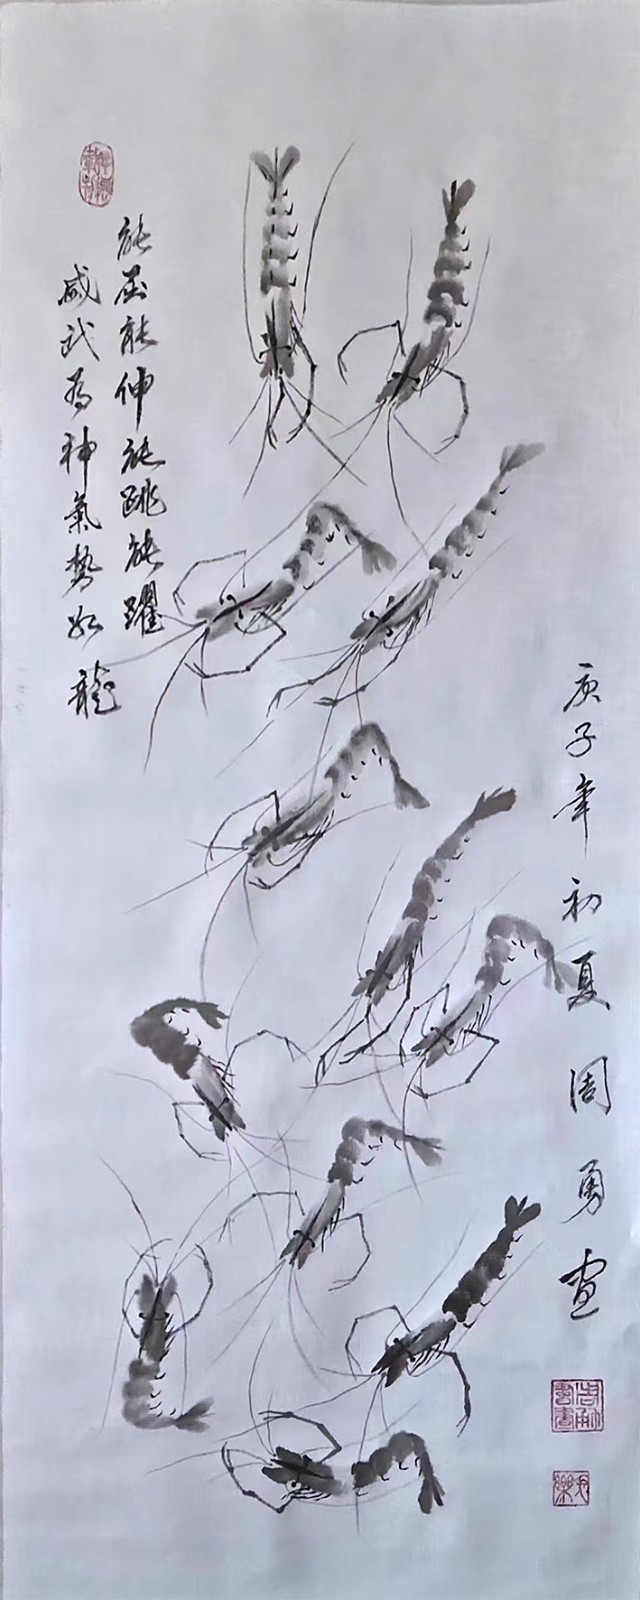 能屈能伸能跳能躍
威武为神氣势如龍
庚子年初夏周勇画